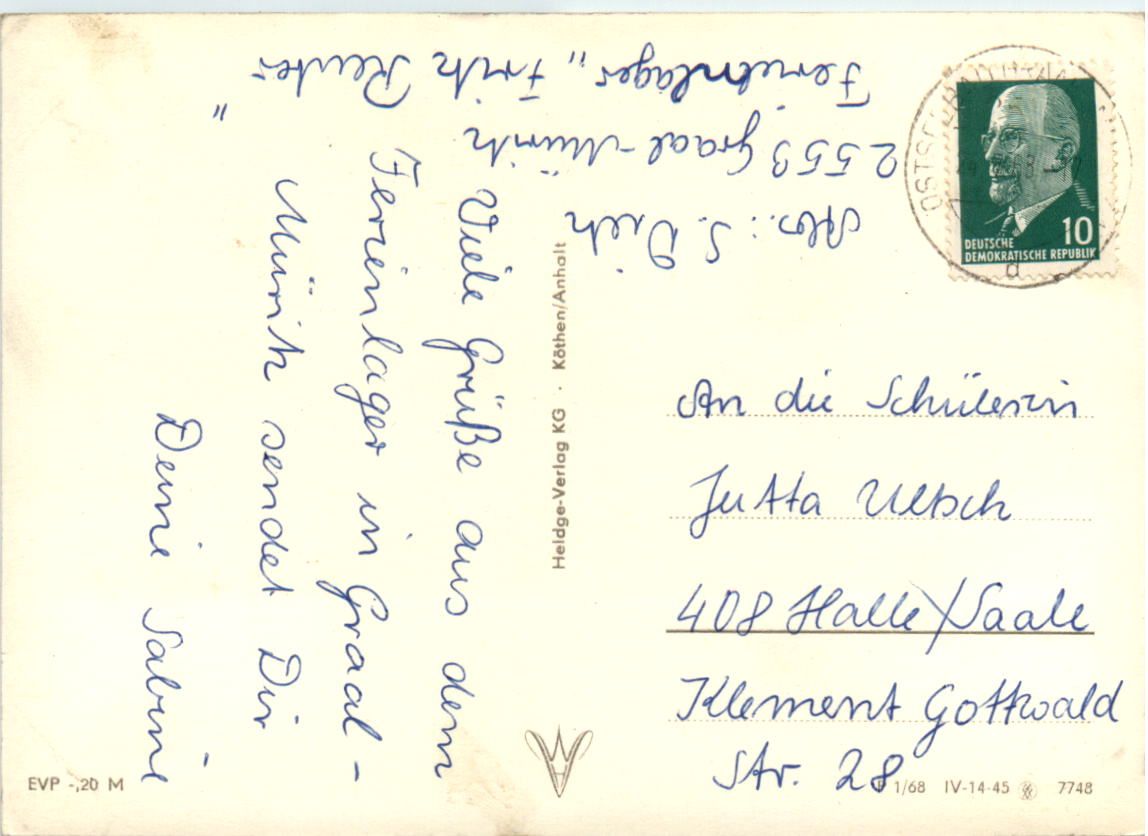 Abs.: S.
2553 Graal-Müritz
Ferienlager „Fritz Reuter
"
Viele Grüße aus dem
Ferienlager in Graal-
Müritz sendet Dir
Deine Sabine
Heldge-Verlag KG · Köthen/Anhalt
DEUTSCHE
DEMOKRATISCHE REPUBLIK
10
d
An die Schülerin
Jutta Ultsch
408 Halle/Saale
Klement Gottwald
Str. 28
EVP -,20 M
1/68 IV-14-45 7748